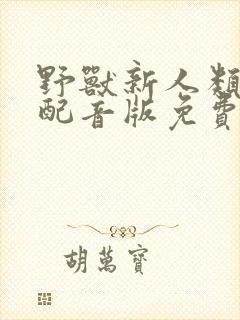 野獸新人類
配音版免費
胡萬寶